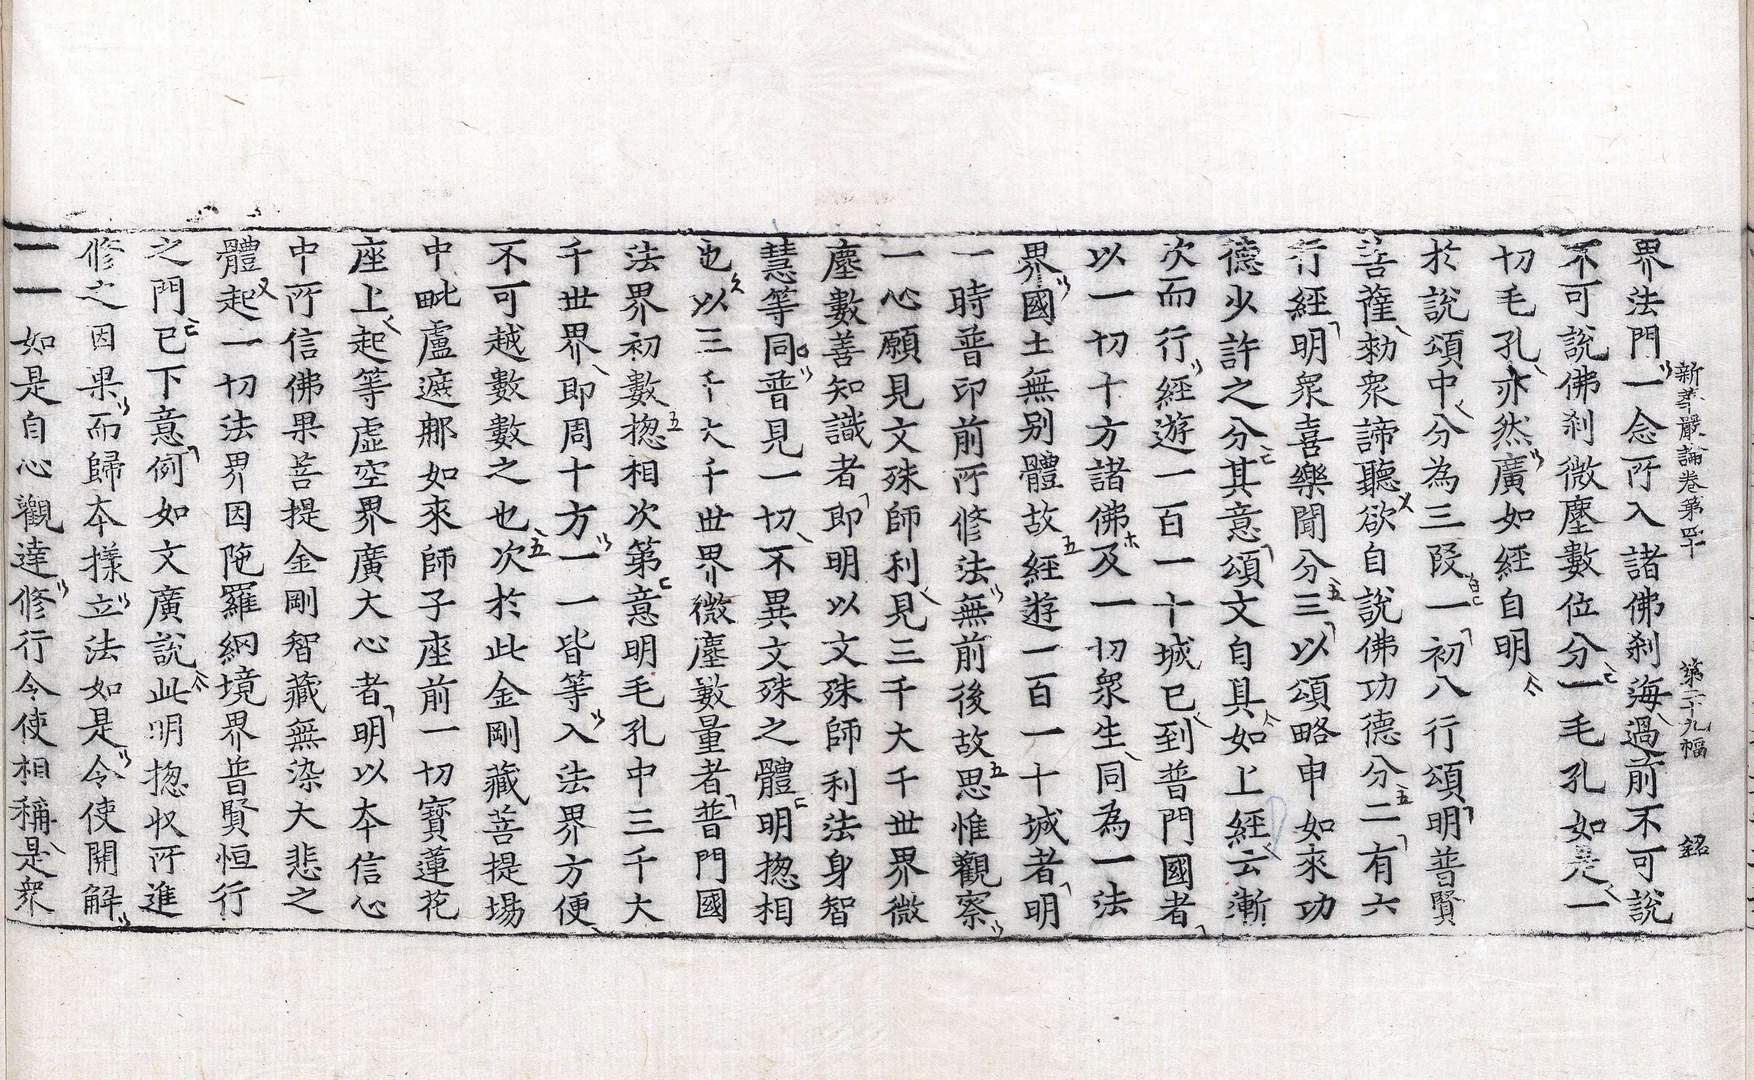 界法門一念所入諸佛刹海過前不可說
新華嚴論卷第四十　第二十九幅　銘
不可說佛刹微塵數位分一毛孔如是一
切毛孔亦然廣如經自明
於說頌中分為三段一初八行頌明普賢
菩薩勑衆諦聽欲自說佛功德分二有六
行經明衆喜樂聞分三以頌略申如來功
德少許之分其意頌文自具如上經云漸
次而行經遊一百一十城已到普門國者
以一切十方諸佛及一切衆生同為一法
界國土無別體故經遊一百一十城者明
一時普印前所修法無前後故思惟觀察
一心願見文殊師利見三千大千世界微
塵數善知識者即明以文殊師利法身智
慧等同普見一切不異文殊之體明揔相
也以三千大千世界微塵數量者普門國
法界初數揔相次第意明毛孔中三千大
千世界即周十方一一皆等入法界方便
不可越數數之也次於此金剛藏菩提場
中毗盧遮那如來師子座前一切寶蓮花
座上起等虛空界廣大心者明以本信心
中所信佛果菩提金剛智藏無染大悲之
體起一切法界因陁羅網境界普賢恒行
之門已下意例如文廣說此明揔収所進
修之因果而歸本㨾立法如是令使開解
一一如是自心觀達修行令使相稱是衆